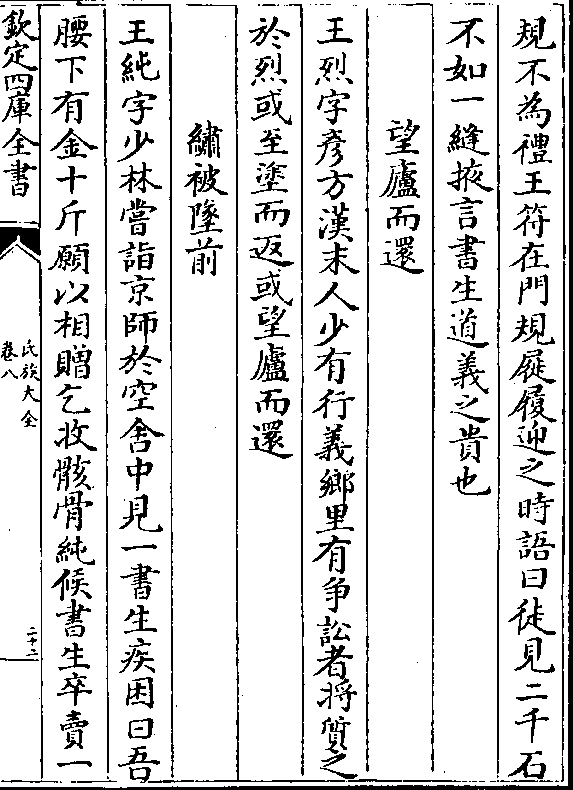 規不為禮王符在門規屣履迎之時語曰徒見二千石
不如一縫掖言書生道義之貴也
望廬而還
王烈字彥方漢末人少有行義鄉里有争訟者將質之
於烈或至塗而返或望廬而還
繡被墜前
王純字少林嘗詣京師於空舍中見一書生疾困曰吾
腰下有金十斤願以相贈乞收骸骨純候書生卒賣一
欽定四庫全書
氏族大全
卷八
二十二